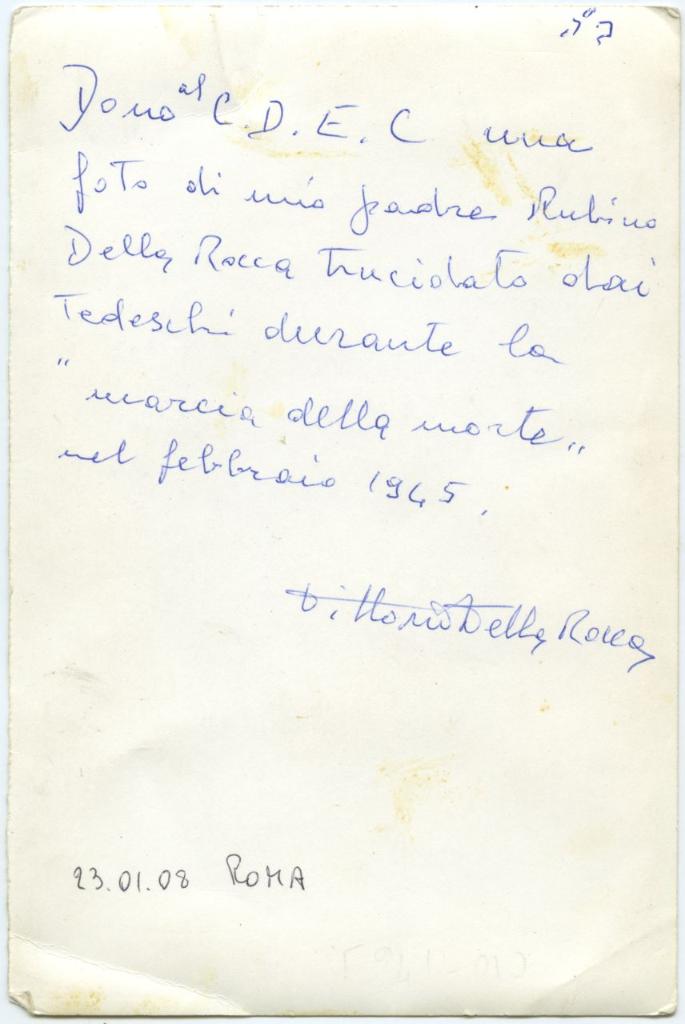 ב"ה
Dono al C.D.E.C una
foto di mio padre Rubino
Della Rocca trucidato dai
Tedeschi durante la
"marcia della morte"
nel febbraio 1945.
Vittorio Della Rocca
23.01.08 ROMA